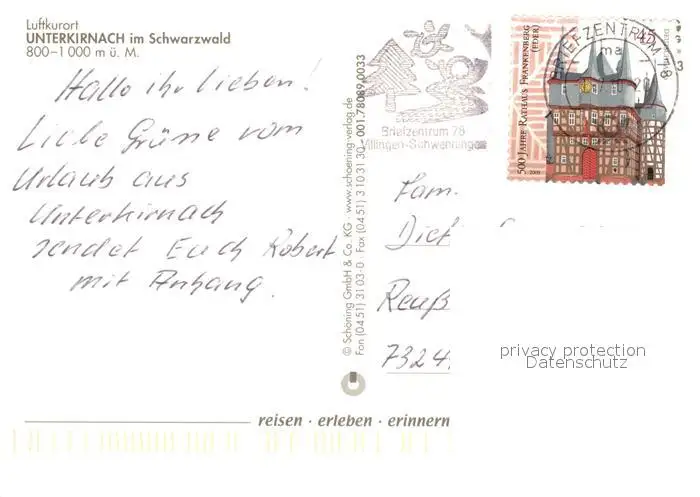 Luftkurort
UNTERKIRNACH im Schwarzwald
800–1 000 m ü. M.
Hallo ihr lieben!
Liebe Grüsse vom
Urlaub aus
Unterkirnach
sendet Euch Robert
mit Anhang.
© Schöning GmbH & Co. KG · www.schoening-verlag.de
Fon (04 51) 31 03-0 · Fax (04 51) 3 10 31 30 · 001.78089.0033
Briefzentrum 78
Villingen-Schwenningen
500 JAHRE RATHAUS FRANKENBERG
(EDER)
45
BRIEFZENTRUM
78
Fam.
Dief
Reuß
7324
privacy protection
Datenschutz
reisen · erleben · erinnern